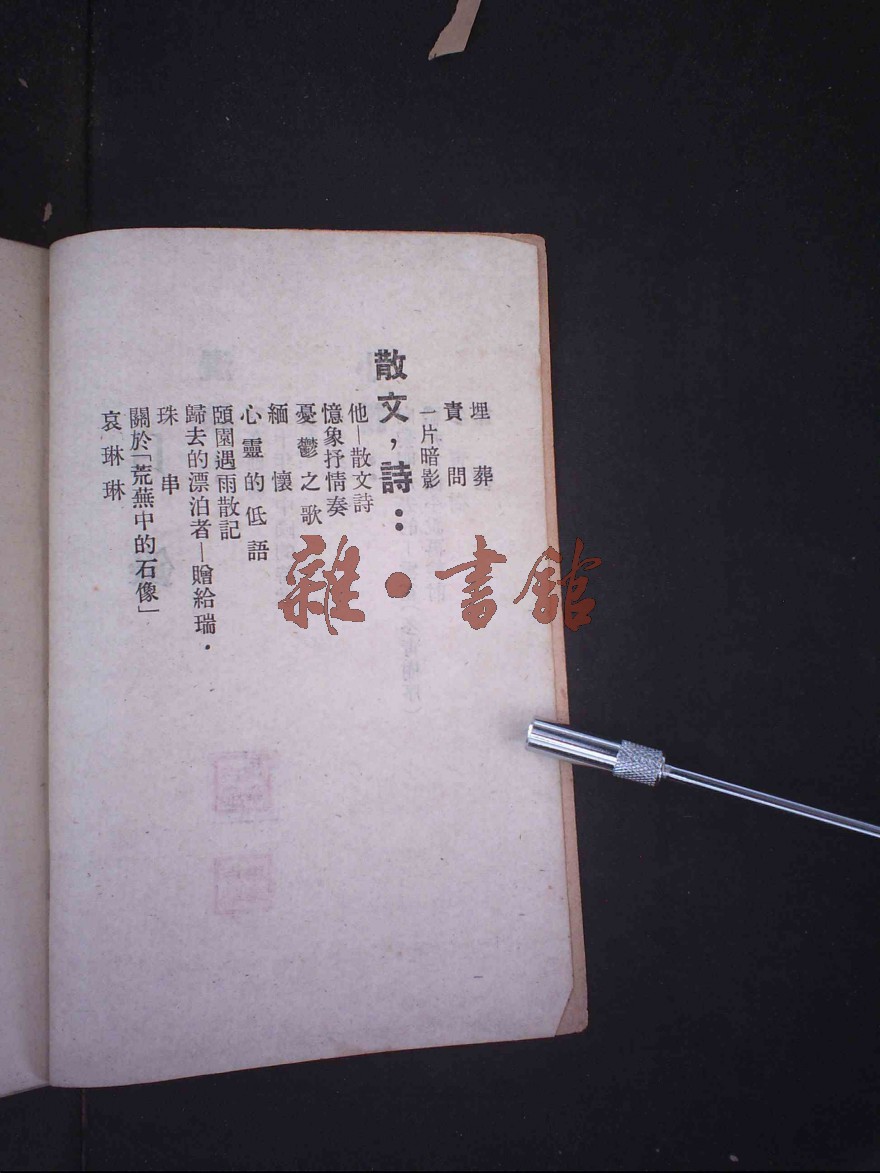 埋葬
責問
一片暗影
散文，詩：
他—散文詩
憶象抒情奏
憂鬱之歌
緬懷
心靈的低語
頤園遇雨散記
歸去的漂泊者—贈給瑞．
珠串
關於「荒蕪中的石像」
哀琳琳
雜·書館